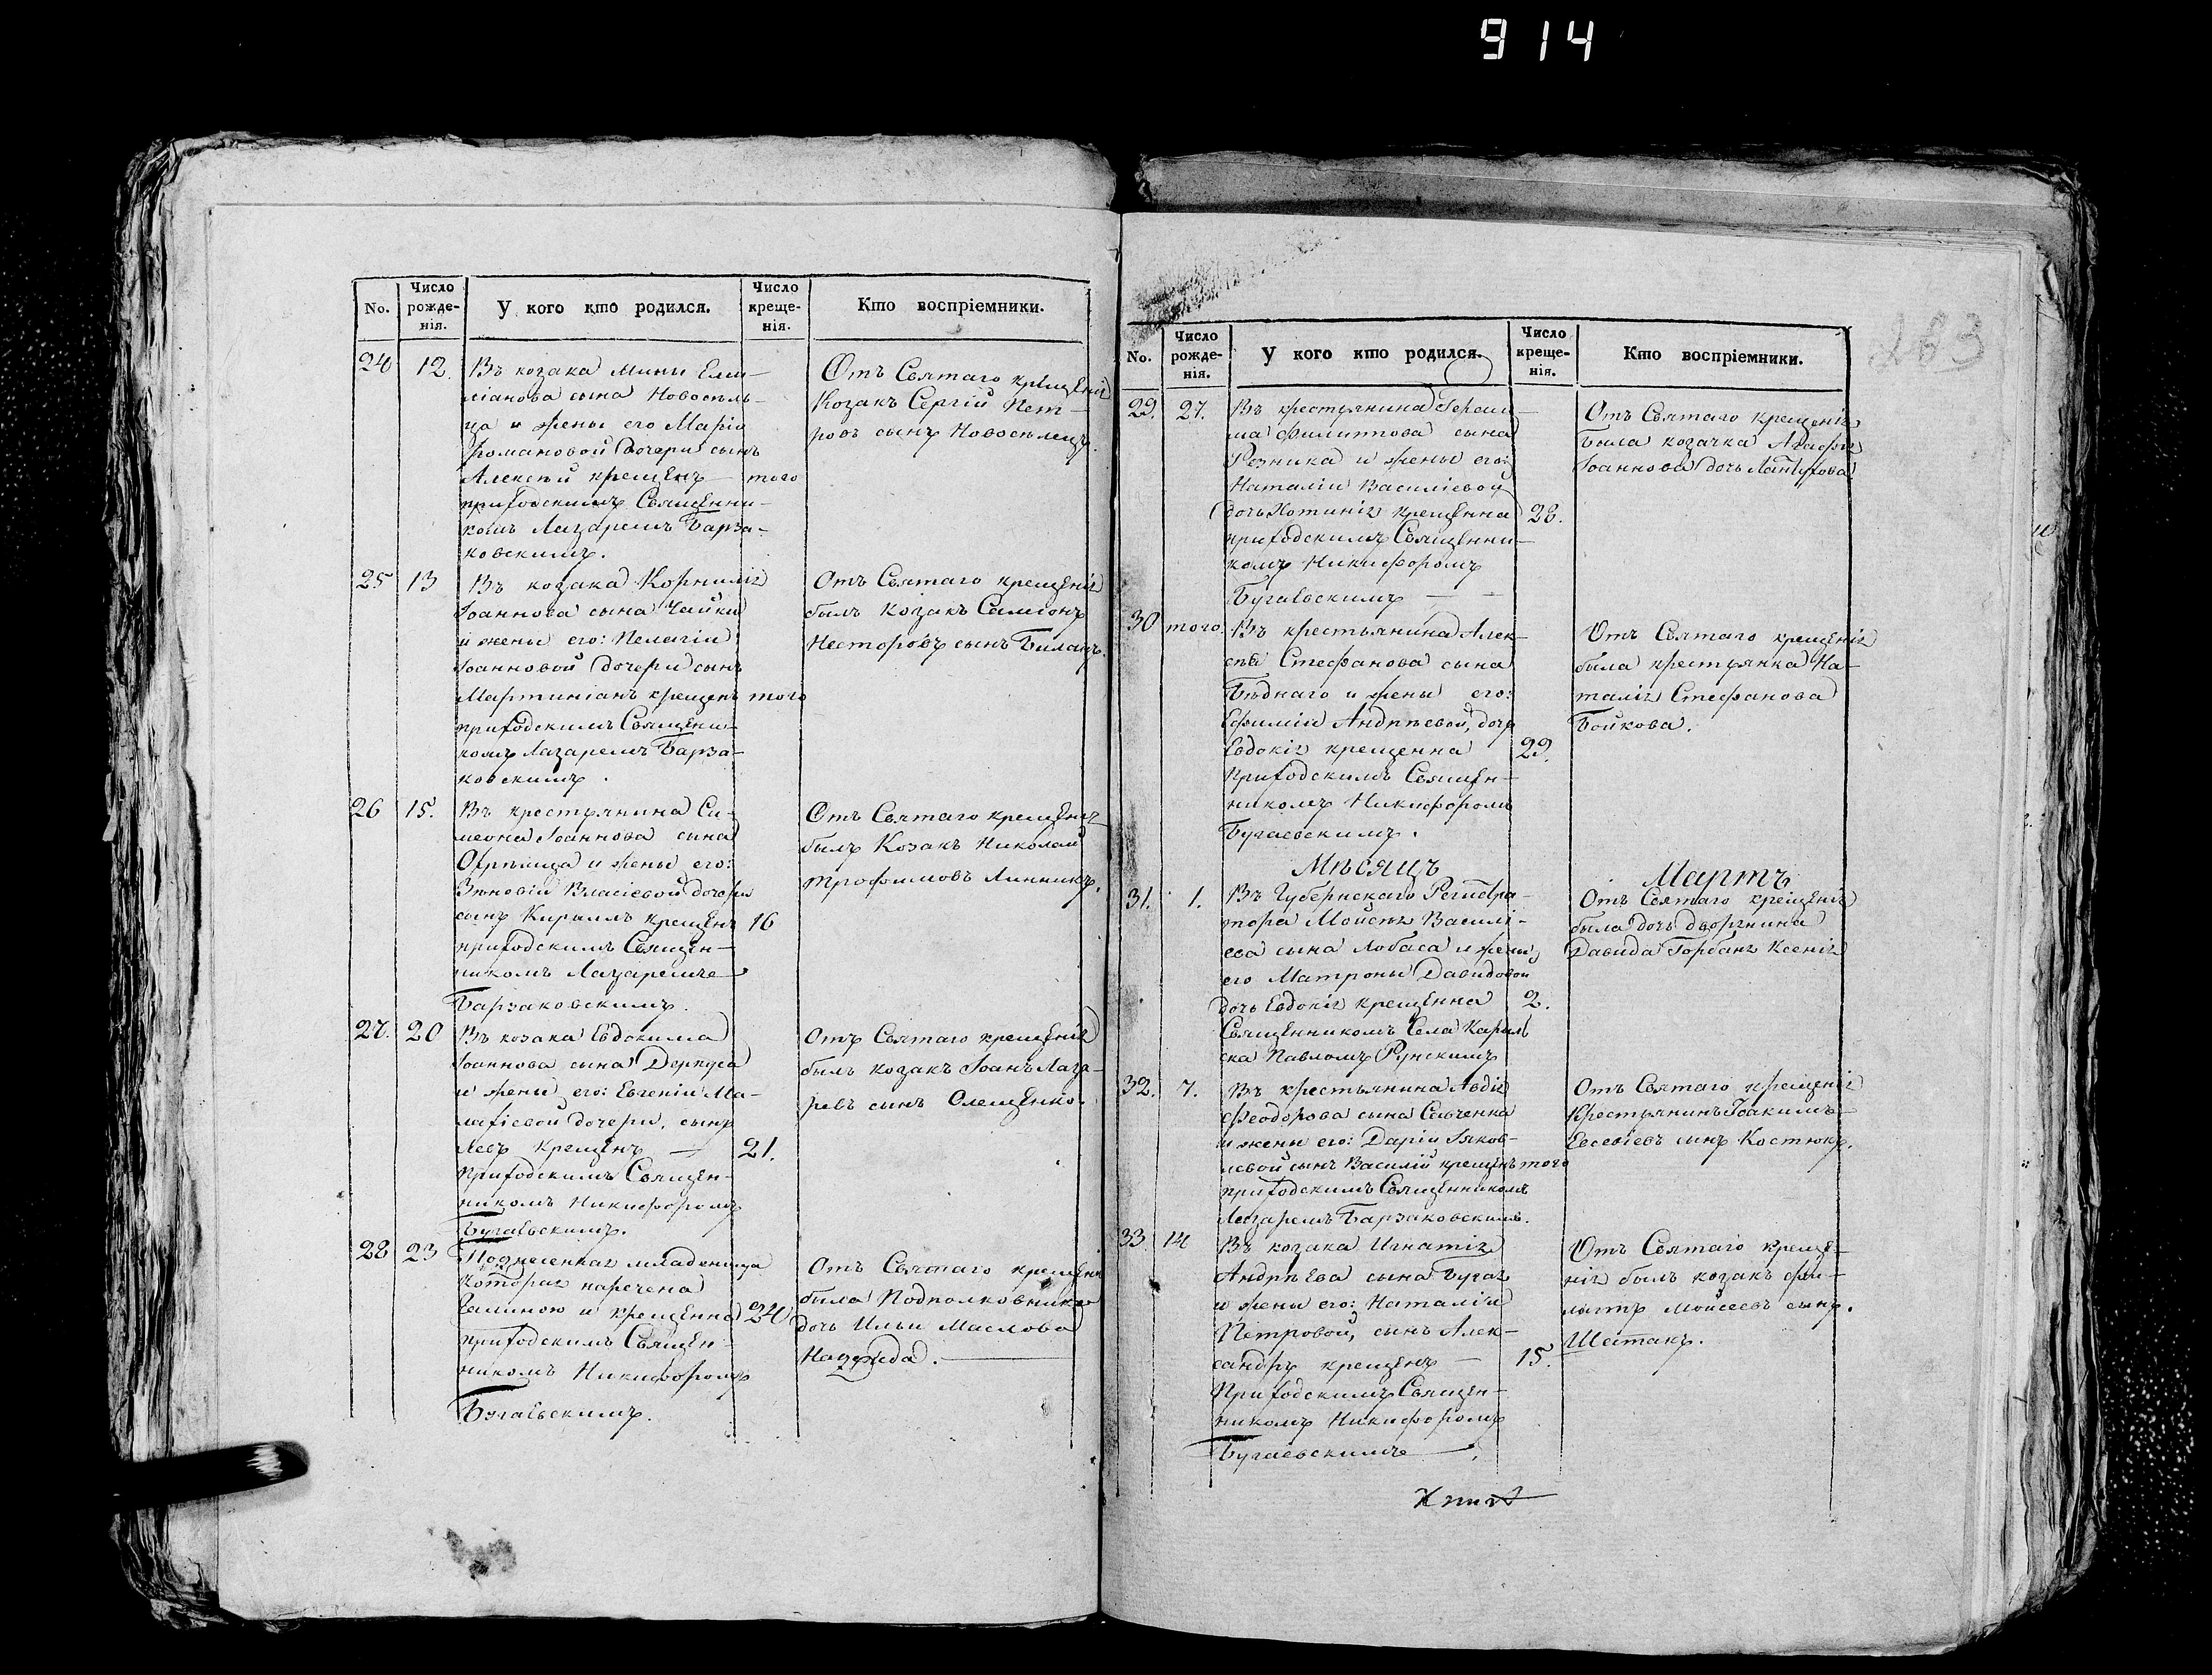 914
No.
Число рожденія.
У кого кто родился.
Число крещенія.
Кто воспріемники.
24 12. Въ козака Мины Еми-
лианова сына Новосель-
ца и жены его Маріи
Романовой дочери сынъ
Алексѣй крещенъ — того
приходскимъ Священни-
комъ Лазаремъ Барза-
ковскимъ.
Отъ Святаго крещенія
Козакъ Сергій Пет-
ровъ сынъ Новоселецъ.
25 13 Въ козака Корнилія
Іоаннова сына Чайки
и жены его: Пелагіи
Іоанновой дочери сынъ
Мартиніанъ крещенъ того
приходскимъ Священи-
комъ Лазаремъ Барза-
ковскимъ.
Отъ Святаго крещенія
былъ козакъ Самсонъ
Несторовъ сынъ Билашъ.
26 15. Въ крестьянина Си-
меона Іоаннова сына
и жены его:
Зѣновіи Власіевой дочери
сынъ Кириллъ крещенъ 16
приходскимъ Священ-
никомъ Лазаремъ
Барзаковскимъ.
Отъ Святаго крещенія
былъ Козакъ Николай
Трофимовъ Линникъ.
27. 20 Въ козака Евдокима
Іоаннова сына Деркуса
и жены его: Евгеніи Ма-
лахіевой дочери, сынъ
Левъ крещенъ — 21.
Приходскимъ Священ-
никомъ Никифоромъ
Бугаевскимъ.
Отъ Святаго крещенія
былъ козакъ Іоанъ Лаза-
ревъ сынъ Олещенко.
28 23 Поднесенная младеница
которая наречена
Галиною и крещенна 24
приходскимъ Священ-
никомъ Никифоромъ
Бугаевскимъ.
Отъ Святаго крещенія
была Подполковника
дочь Ильи Маслова
Надежда.
No.
Число рожденія.
У кого кто родился.
Число крещенія.
Кто воспріемники.
29. 27. Въ крестьянина Гераси-
ма Филиппова сына
Резника и жены его:
Наталіи Василіевой
дочь Хотинія крещенна 28.
приходскимъ Священни-
комъ Никифоромъ
Бугаевскимъ — —
Отъ Святаго крещенія
была козачка Агафія
Іоаннова дочь
30 того. Въ крестьянина Алек-
сѣя Стефанова сына
Бѣднаго и жены его:
Ефиміи Андрѣевой, дочь
Евдокія крещенна 29.
приходскимъ Священ-
никомъ Никифоромъ
Бугаевскимъ.
Отъ Святаго крещенія
была крестьянка На-
талія Стефанова
Бойкова.
Мѣсяцъ Мартъ
31. 1. Въ Губернскаго Регистра-
тора Мойсея Василі-
ева сына Лобаса и жены
его Матроны Давидовой
дочь Евдокія крещенна 2.
Священникомъ Села Карыль
ска Павломъ Рунскимъ
Отъ Святаго крещенія
была дочь дворянина
Давида Горбаня Ксенія
32. 7. Въ крестьянина Авдія
Феодорова сына Савченка
и жены его: Даріи Яков-
левой сынъ Василій крещенъ того
приходскимъ Священникомъ
Лазаремъ Барзаковскимъ.
Отъ Святаго крещенія
Крестьянинъ Іоакимъ
Евсевіевъ сынъ Костюкъ.
33. 14 Въ козака Игнатія
Андрѣева сына Бугая
и жены его: Наталіи
Петровой, сынъ Алек-
сандръ крещенъ — 15.
Приходскимъ Священ-
никомъ Никифоромъ
Бугаевскимъ.
Отъ Святаго креще-
нія былъ козакъ Фи-
липпъ Моисеевъ сынъ.